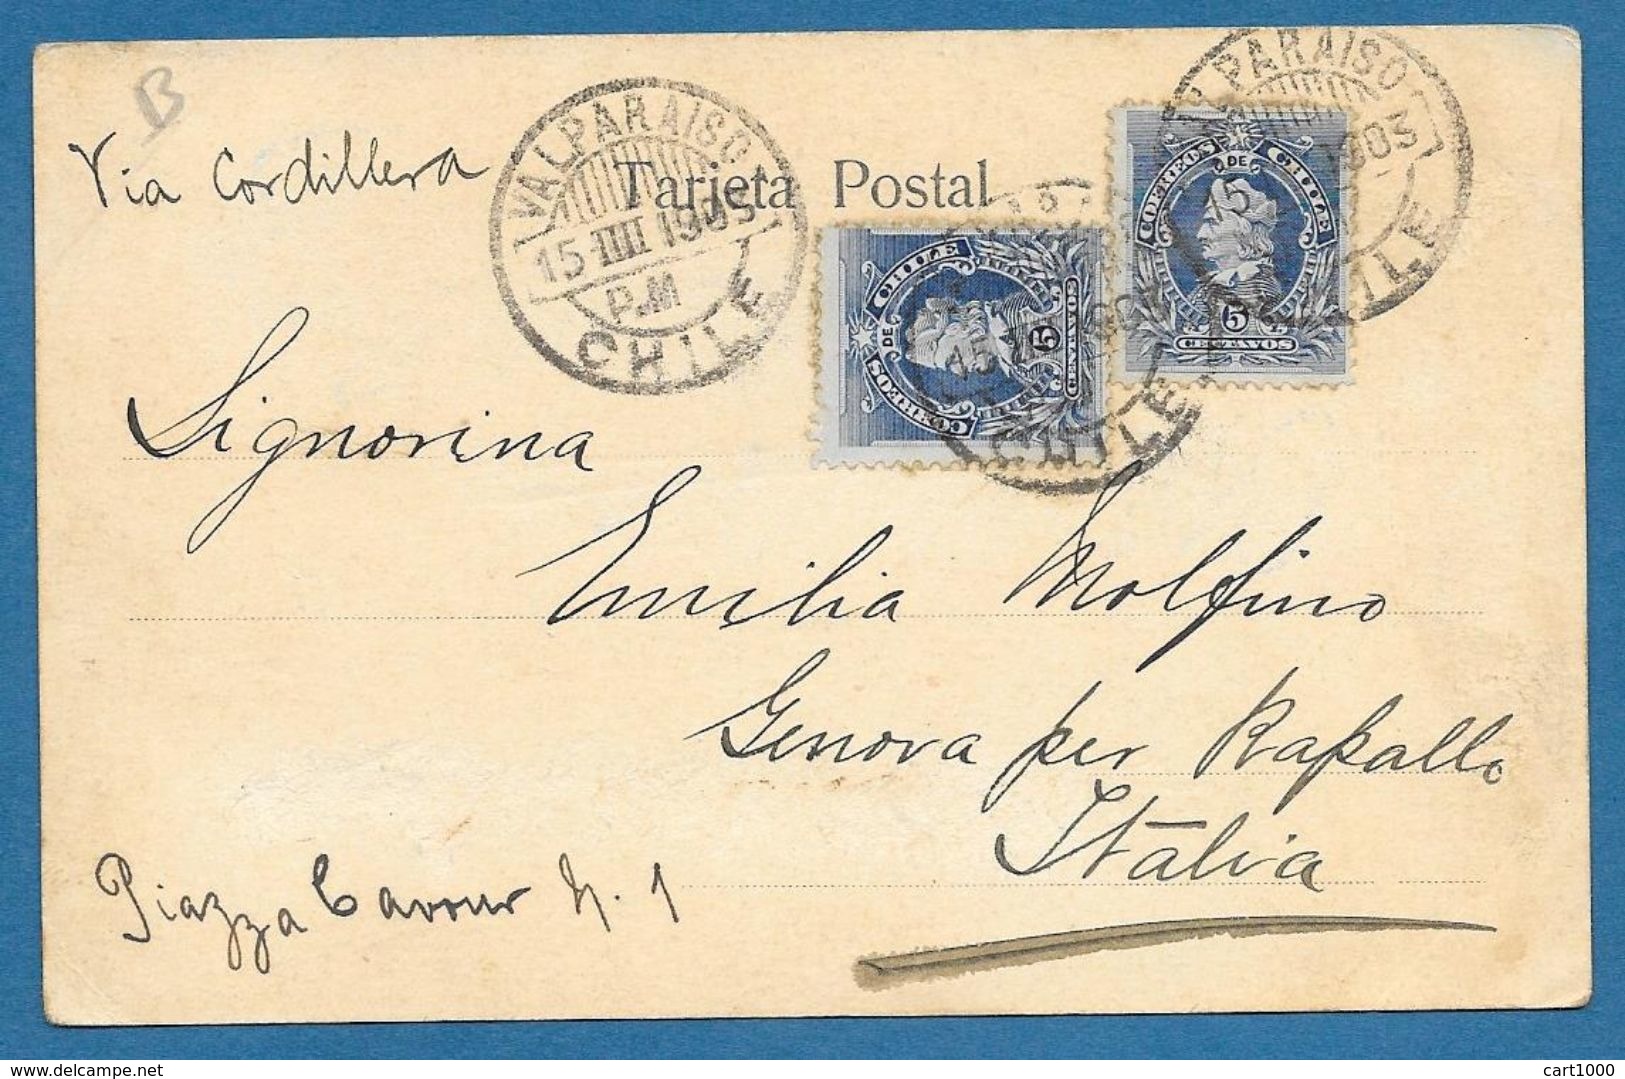 B
Via Cordillera
Tarjeta Postal
VALPARAISO
15 IIII 1903
P.M
CHILE
PARAISO
15 1903
CHILE
15
CHILE
CORREOS DE CHILE
5
CENTAVOS
CORREOS DE CHILE
5
CENTAVOS
Signorina
Emilia Molfino
Genova per Rapallo
Italia
Piazza Cavour N. 1
www.delcampe.net
cart1000